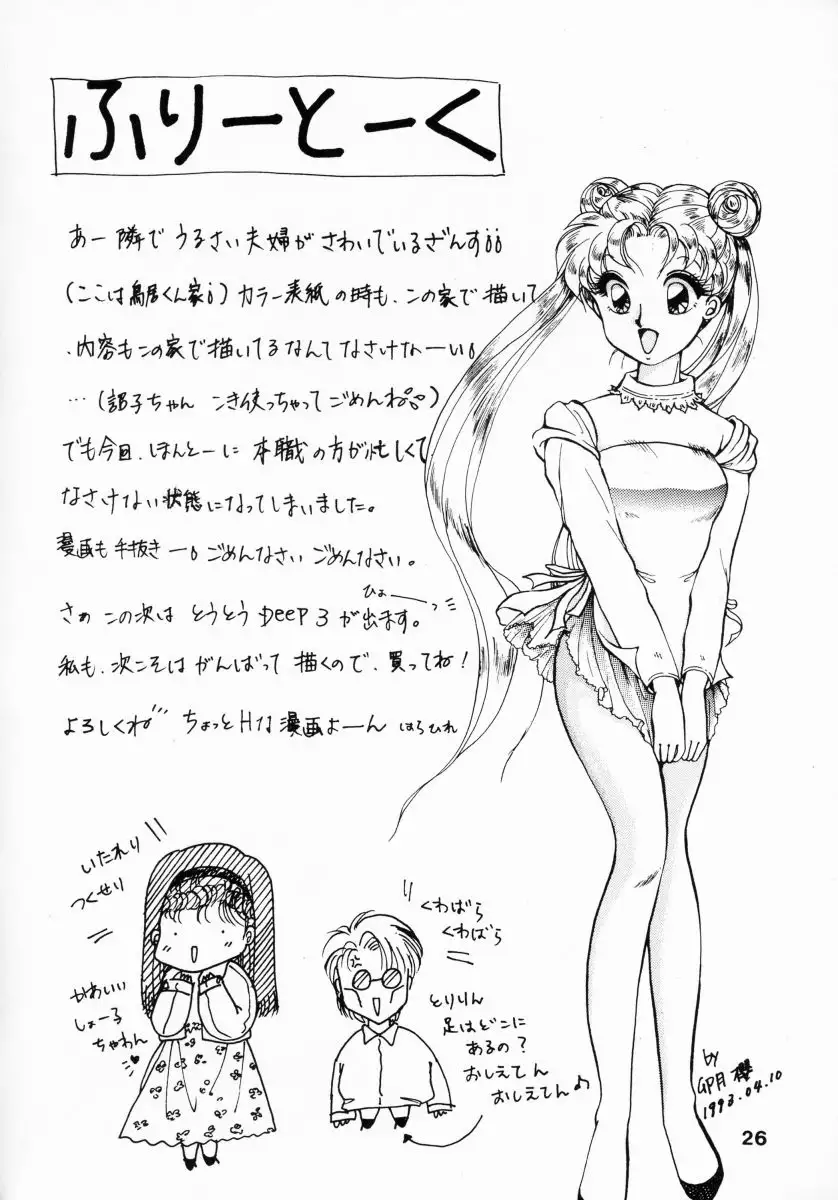 ふりーとーく
あー 隣で うるさい夫婦が さわいでいるざんすδδ
(ここは鳥居くん家δ) カラー表紙の時も、この家で描いて
、内容もこの家で描いてるなんて なさけなーい。
…(詔子ちゃん こき使っちゃってごめんね)
でも今回、ほんとーに 本職の方が忙しくて
なさけない状態になってしまいました。
漫画も手抜きー。ごめんなさい ごめんなさい。
ひょーっ
さぁ この次は とうとう DEEP 3 が出ます。
私も、次こそは がんばって 描くので、買ってね!
よろしくね ちょっとHな漫画よーん はらひれ
いたれり
つくせり
かあいい
しょー子
ちゃわん
くわばら
くわばら
とりりん
足はどこに
あるの?
おしえてん
おしえてん♪
by
卯月 櫻
1993.04.10
26